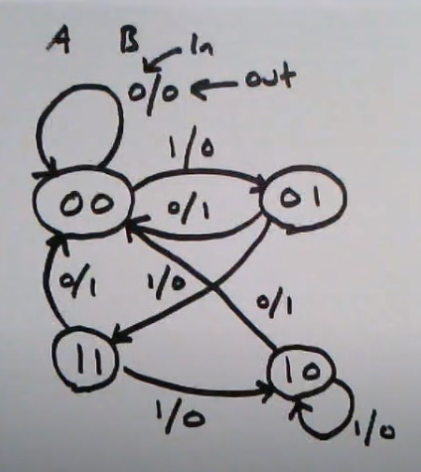 A B In
0/0 out
1/0
00 0/1 01
0/1 1/0 0/1
11 10
1/0 1/0